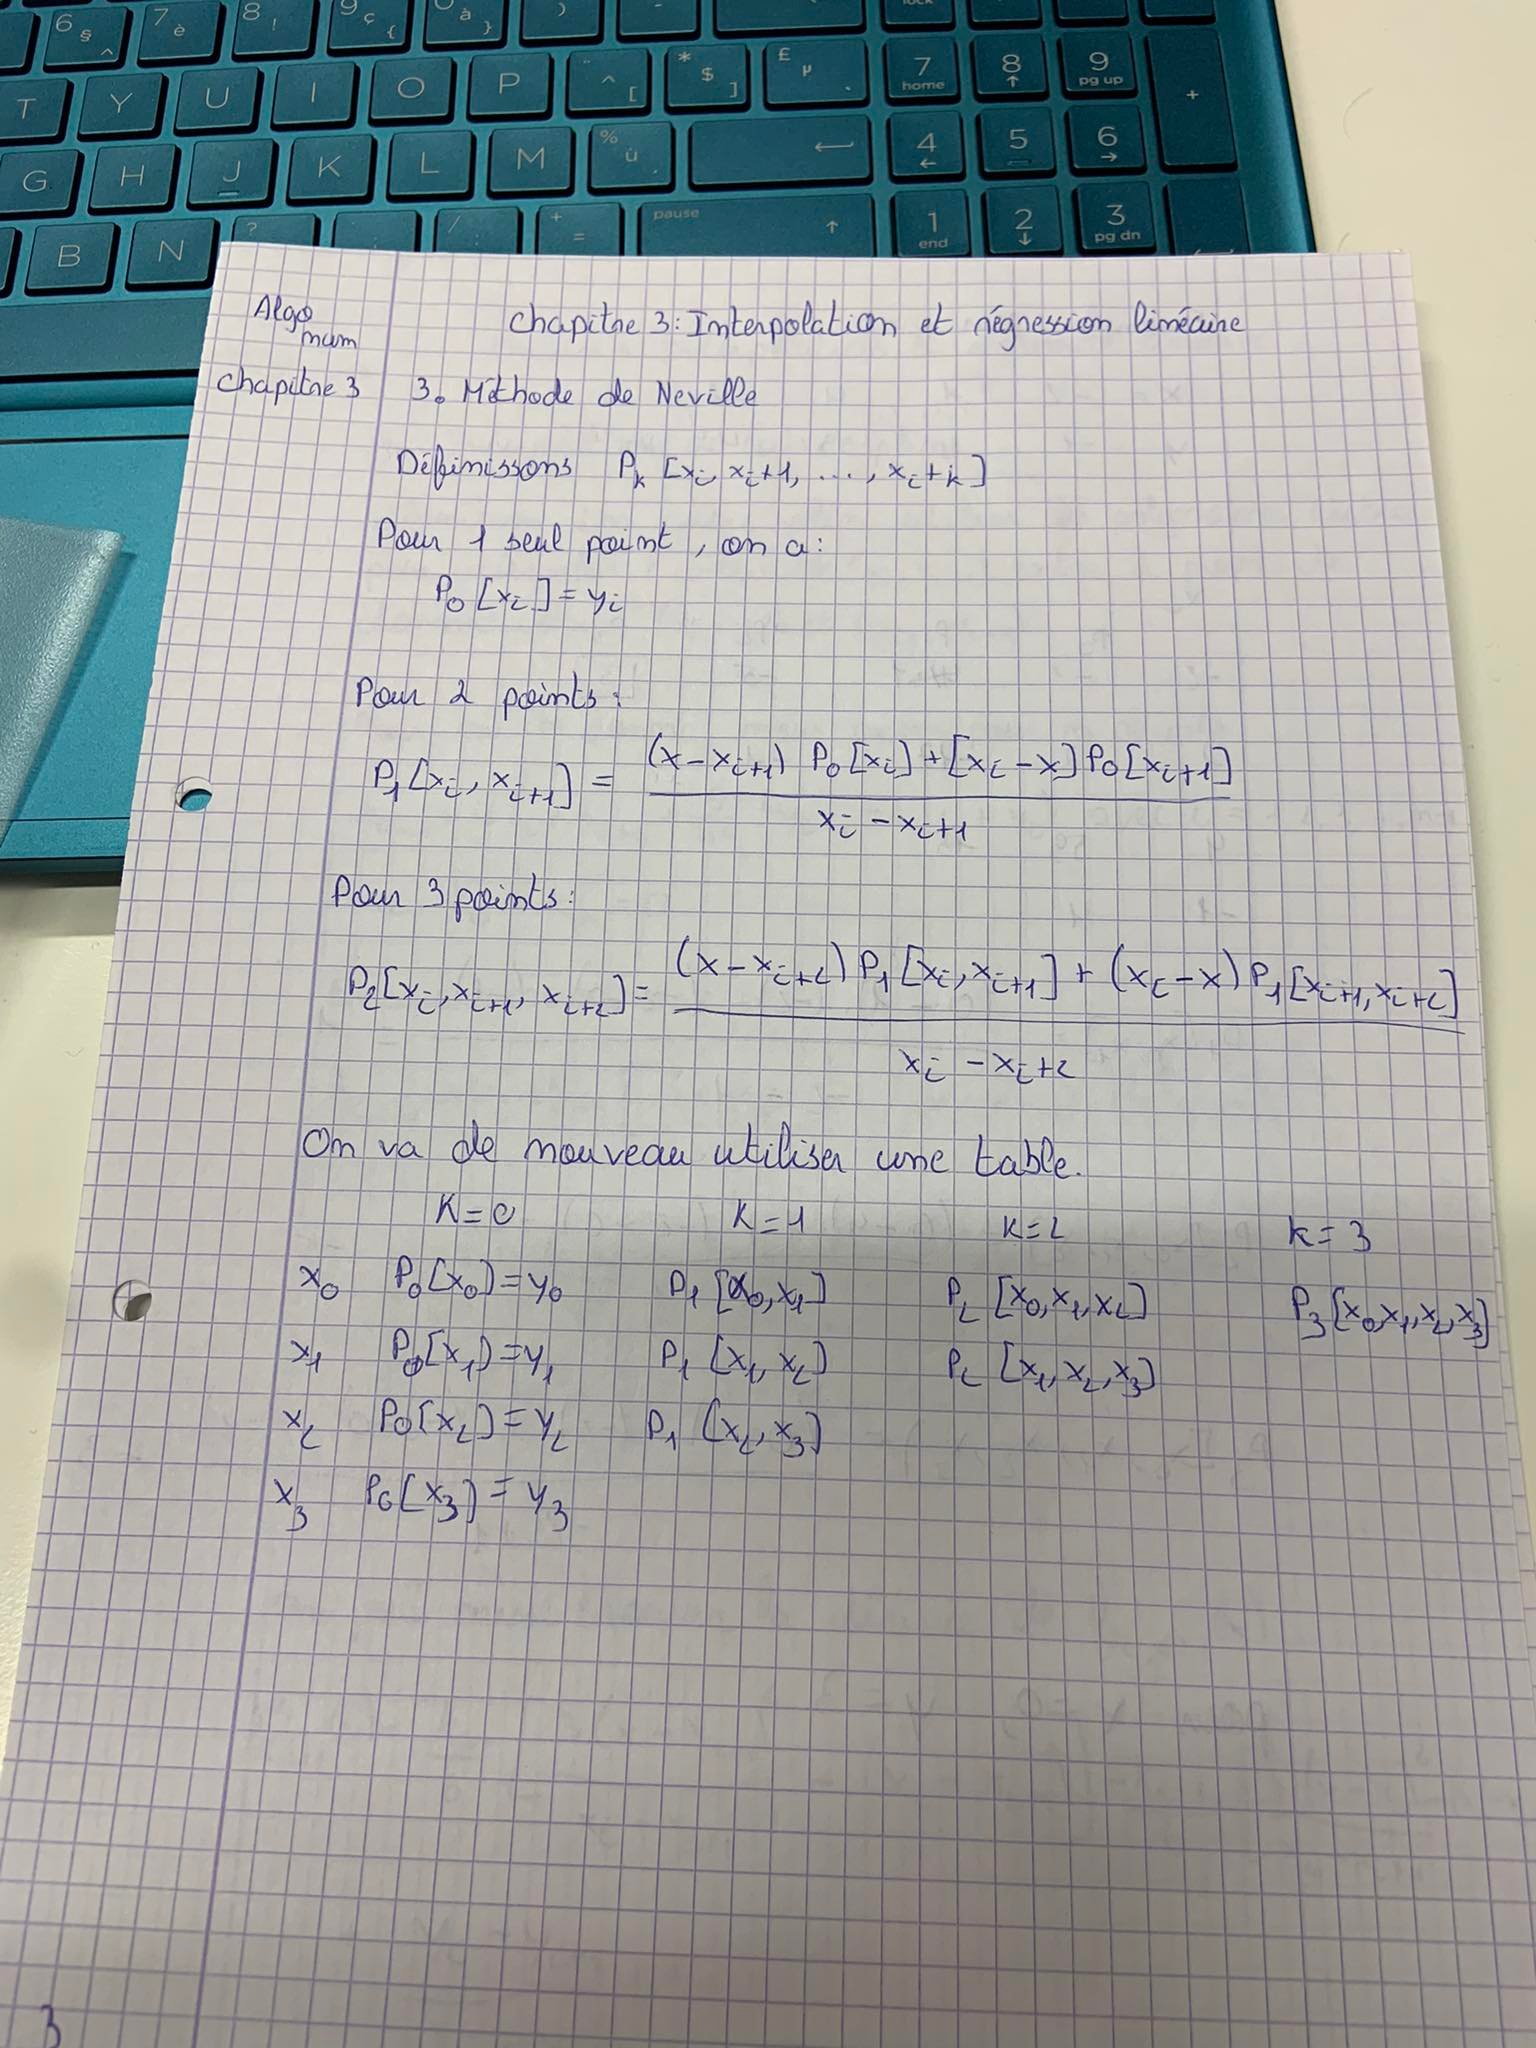 6 § ^
7 è
8 !
9 ç {
à }
)
-
lock
T Y U I O P
¨ ^ [
* $ ]
£ µ
7 home
8 ↑
9 pg up
+
G H J K L M
% ù
←
4 ←
5
6 →
B N
?
/
+ =
pause
↑
1 end
2 ↓
3 pg dn
Algo
num
Chapitre 3: Interpolation et régression linéaire
Chapitre 3
3. Méthode de Neville
Définissons P_k [x_i, x_i+1, ..., x_i+k]
Pour 1 seul point, on a:
P_0 [x_i] = y_i
Pour 2 points:
P_1 [x_i, x_{i+1}] = ((x - x_{i+1}) P_0 [x_i] + [x_i - x] P_0 [x_{i+1}]) / (x_i - x_{i+1})
Pour 3 points:
P_2 [x_i, x_{i+1}, x_{i+2}] = ((x - x_{i+2}) P_1 [x_i, x_{i+1}] + (x_i - x) P_1 [x_{i+1}, x_{i+2}]) / (x_i - x_{i+2})
On va de nouveau utiliser une table.
K=0 K=1 K=2 k=3
x_0 P_0[x_0) = y_0 P_1 [x_0, x_1] P_2 [x_0, x_1, x_2] P_3 [x_0, x_1, x_2, x_3]
x_1 P_0[x_1) = y_1 P_1 [x_1, x_2] P_2 [x_1, x_2, x_3]
x_2 P_0[x_2) = y_2 P_1 (x_2, x_3]
x_3 P_0[x_3] = y_3
3